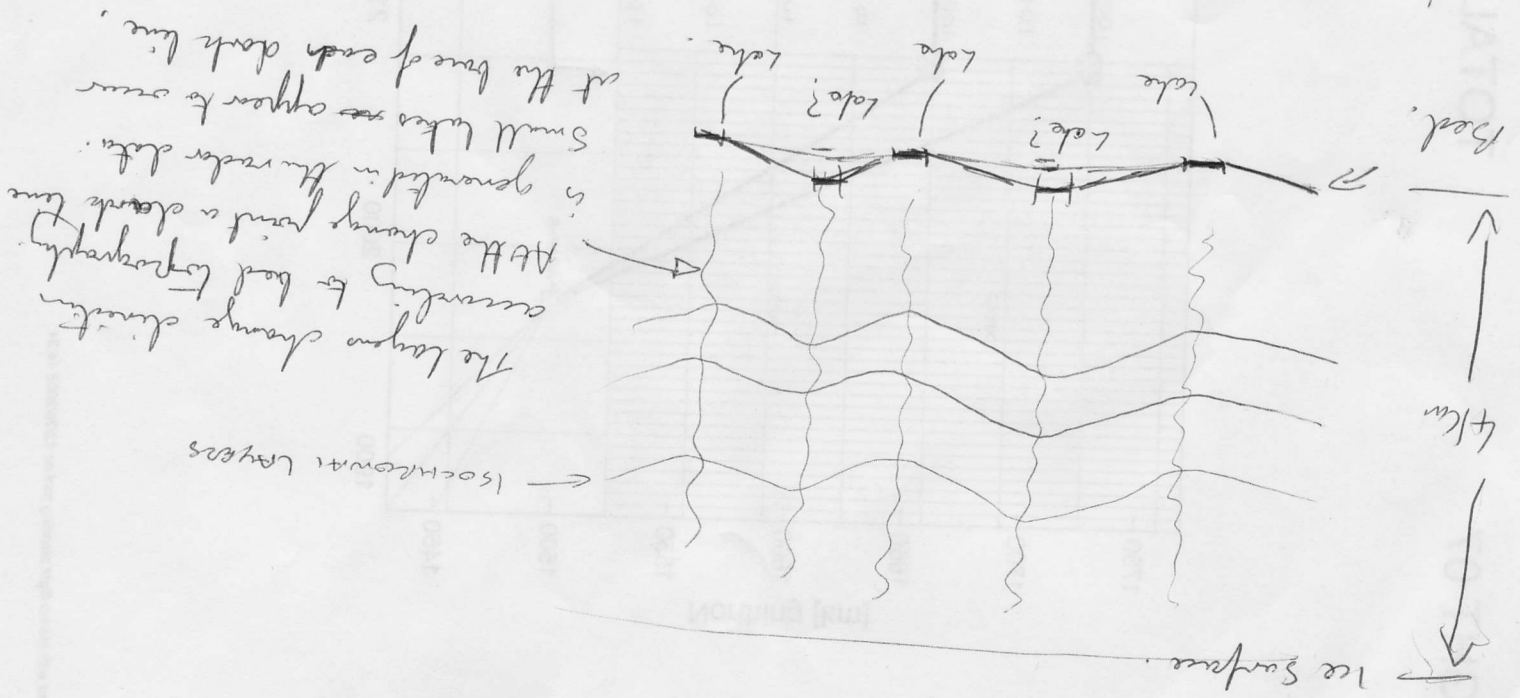 Ice Surface.
4km
← ISOCHRONAL LAYERS
The layers change direction
according to bed topography.
At the change point a dark line
is generated in the radar data.
Small lakes appear to occur
at the base of each dark line.
Bed.
Lake
Lake?
Lake
Lake?
Lake.
Northing [km]